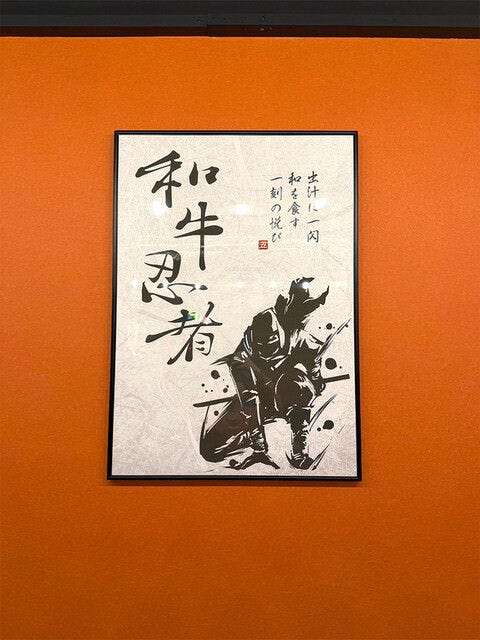 和牛忍者
出汁に一閃
和を食す
一刻の悦び